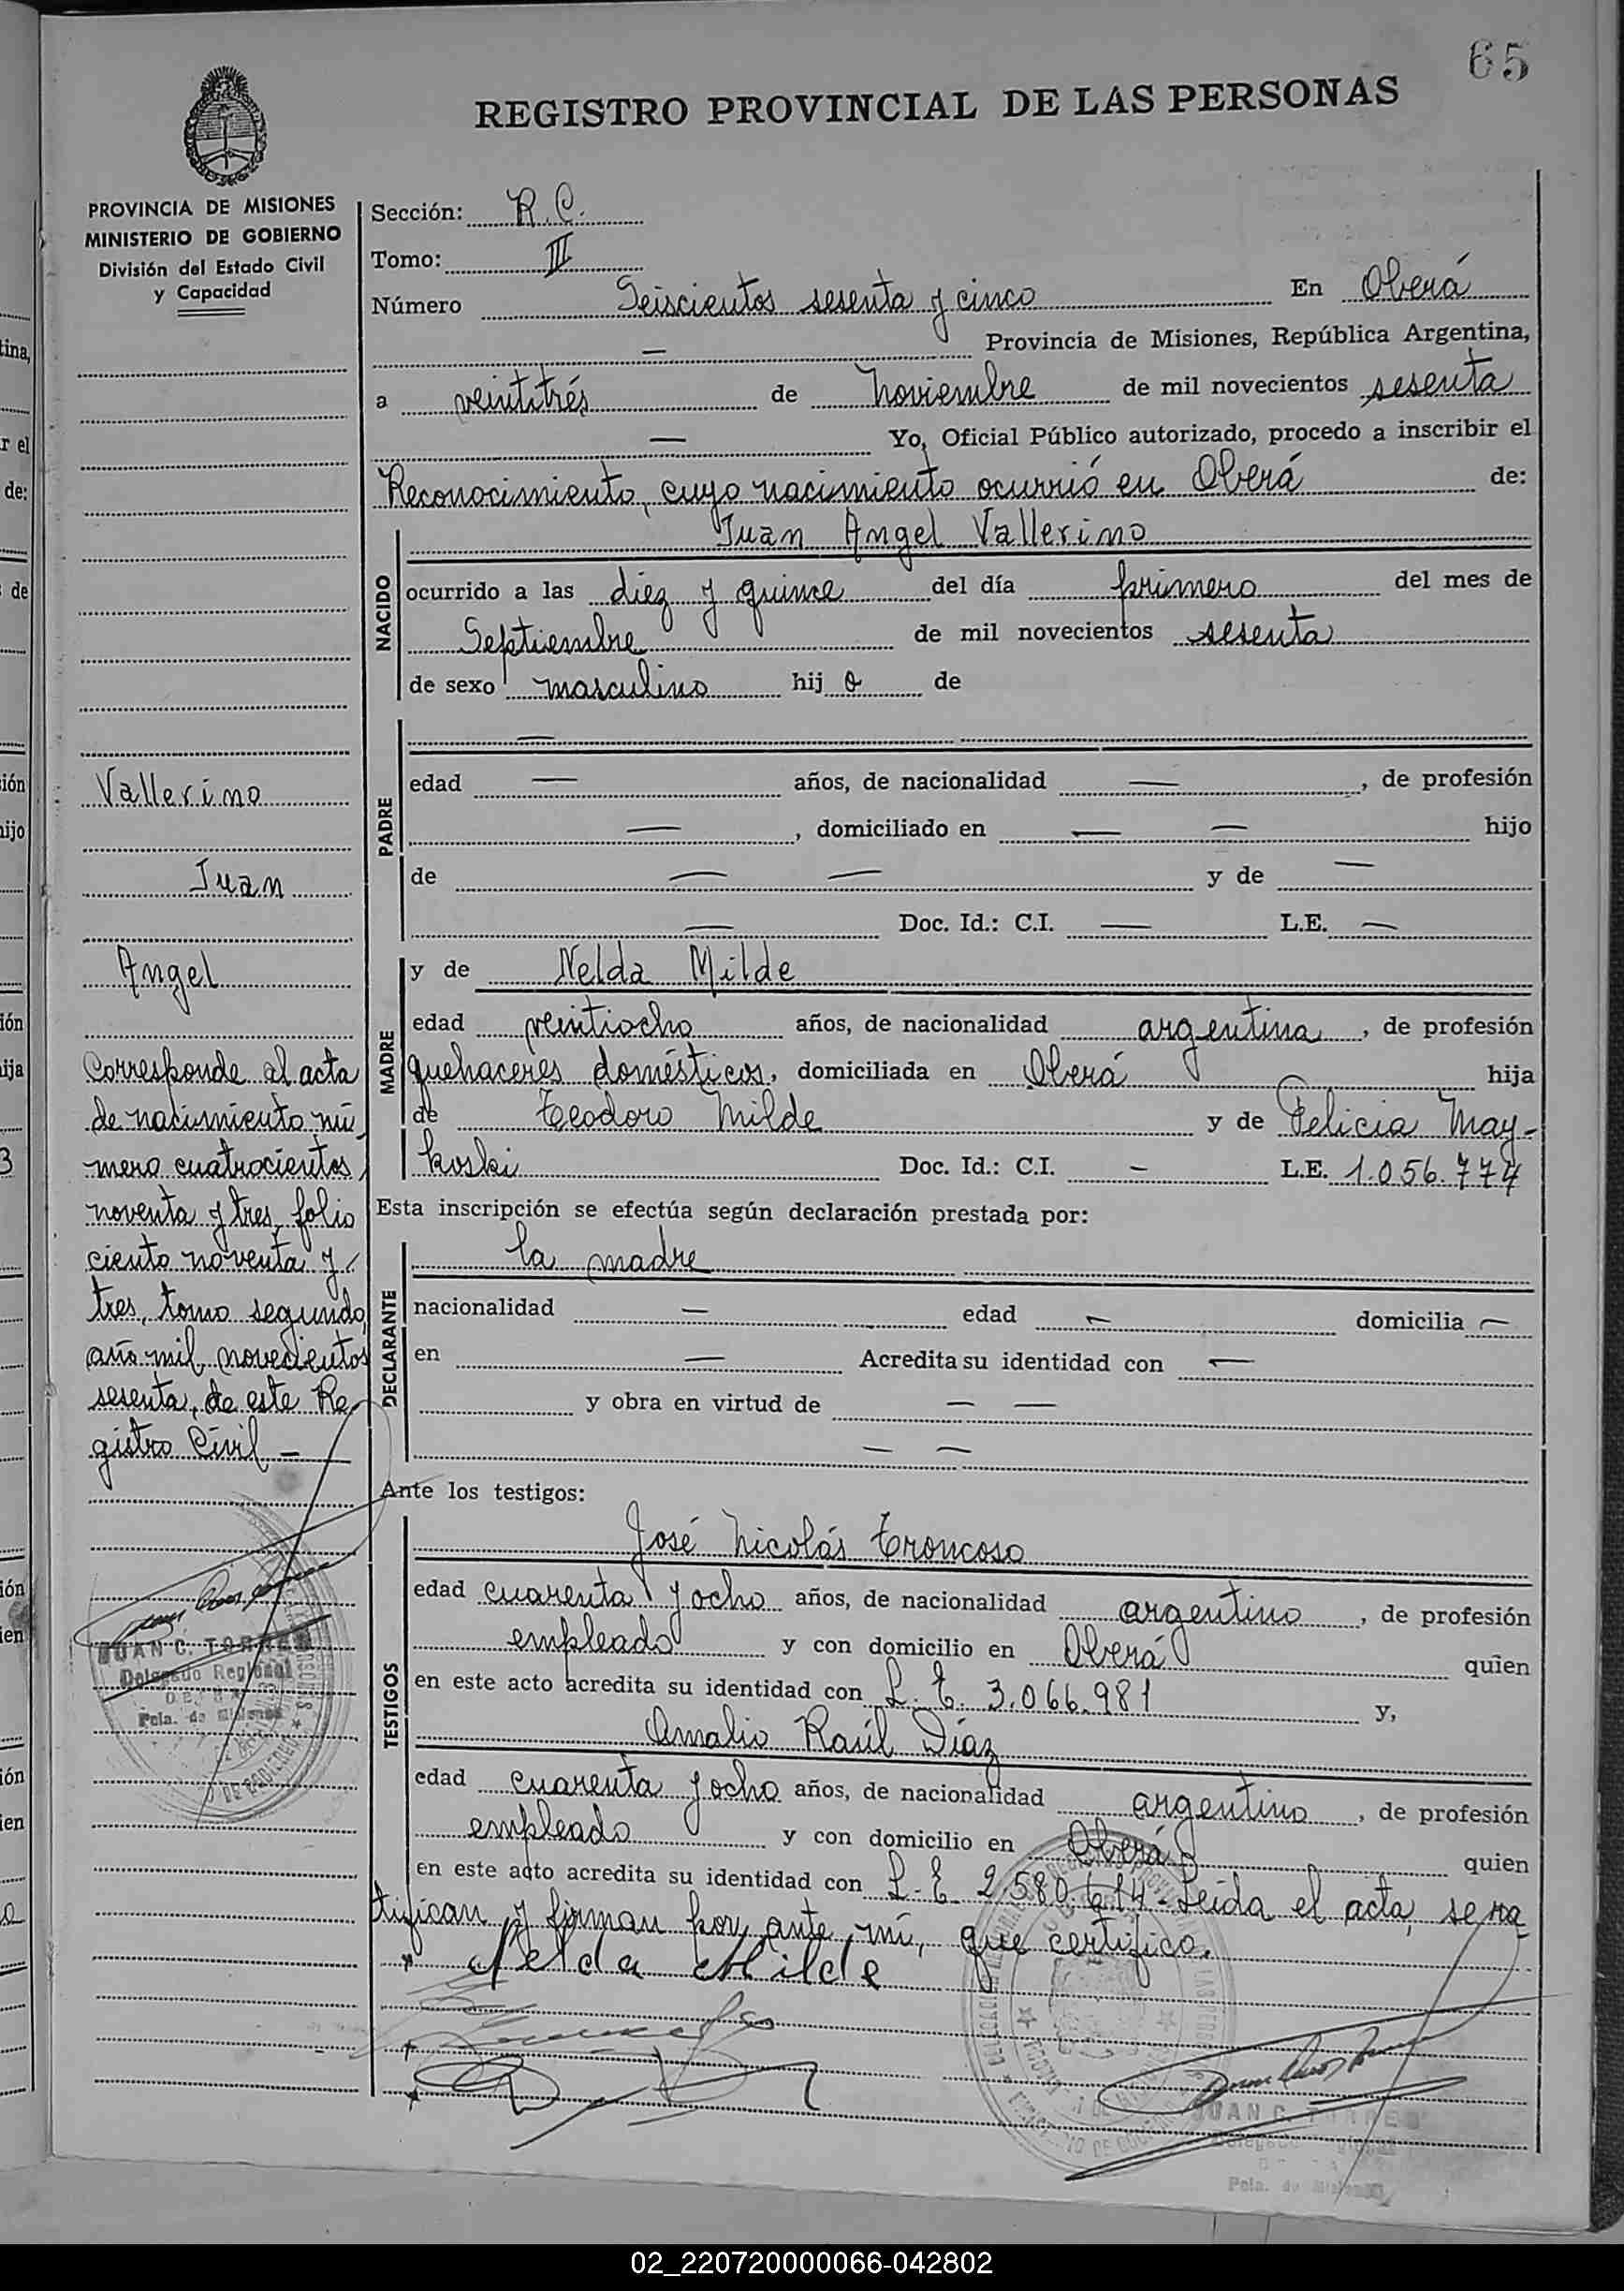 65
REGISTRO PROVINCIAL DE LAS PERSONAS
PROVINCIA DE MISIONES
MINISTERIO DE GOBIERNO
División del Estado Civil
y Capacidad
Sección: R. C.
Tomo: III
Número Seiscientos sesenta y cinco En Oberá
— Provincia de Misiones, República Argentina,
a veintitrés de Noviembre de mil novecientos sesenta
— Yo, Oficial Público autorizado, procedo a inscribir el
Reconocimiento, cuyo nacimiento ocurrió en Oberá de:
NACIDO
Juan Angel Vallerino
ocurrido a las diez y quince del día primero del mes de
Septiembre de mil novecientos sesenta
de sexo masculino hij o de
PADRE
—
edad — años, de nacionalidad —, de profesión
—, domiciliado en — — hijo
de — — y de —
— Doc. Id.: C.I. — L.E. —
MADRE
y de Nelda Milde
edad veintiocho años, de nacionalidad argentina, de profesión
quehaceres domésticos, domiciliada en Oberá hija
de Teodoro Milde y de Felicia May-
koski Doc. Id.: C.I. — L.E. 1.056.774
Esta inscripción se efectúa según declaración prestada por:
DECLARANTE
la madre
nacionalidad — edad — domicilia —
en — Acredita su identidad con —
y obra en virtud de — —
— —
Ante los testigos:
TESTIGOS
José Nicolás Troncoso
edad cuarenta y ocho años, de nacionalidad argentino, de profesión
empleado y con domicilio en Oberá quien
en este acto acredita su identidad con L. E. 3.066.981 y,
Amalio Raúl Díaz
edad cuarenta y ocho años, de nacionalidad argentino, de profesión
empleado y con domicilio en Oberá quien
en este acto acredita su identidad con L. E. 2.580.614. Leida el acta, se ra
tifican y firman por ante mí, que certifico.
Nelda Milde
Vallerino
Juan
Angel
Corresponde al acta
de nacimiento nú-
mero cuatrocientos
noventa y tres, folio
ciento noventa y
tres, tomo segundo,
año mil novecientos
sesenta, de este Re-
gistro Civil —
JUAN C. TORRES
Delegado Regional
OBERA
Pcia. de Misiones
JUAN C. TORRES
Delegado Regional
Pcia. de Misiones
02_220720000066-042802